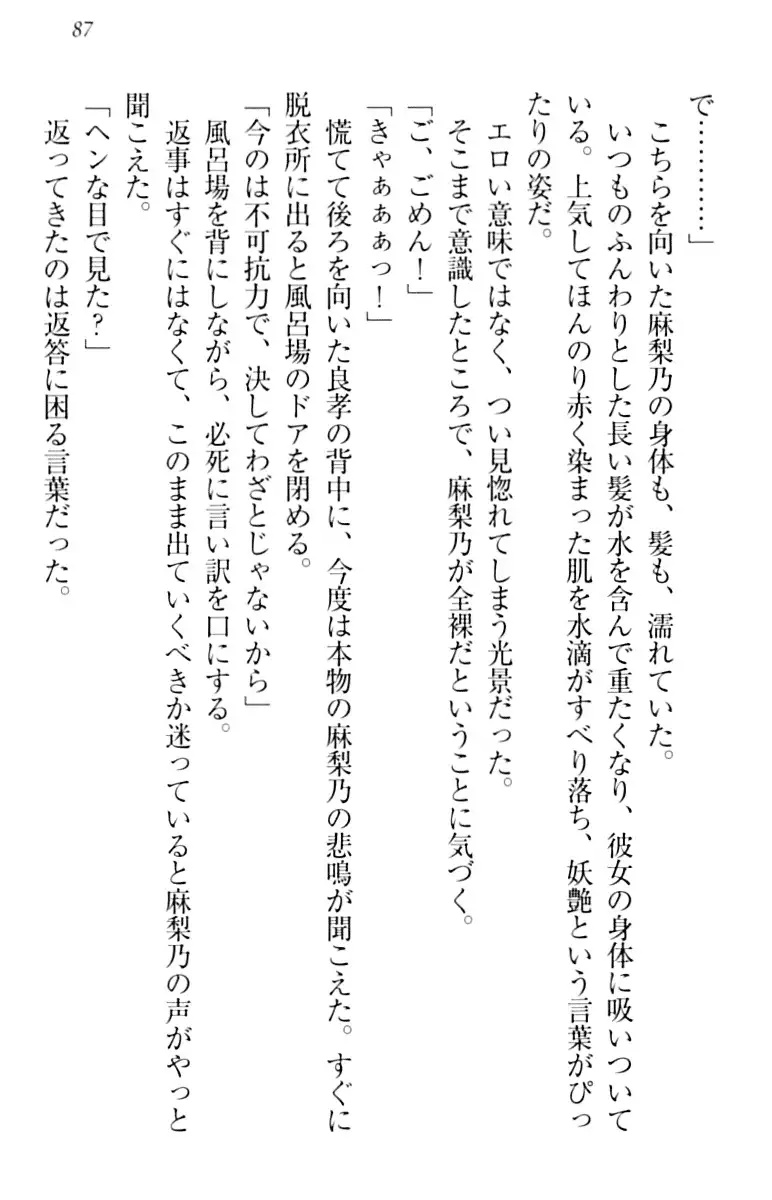 87
で…………」
　こちらを向いた麻梨乃の身体も、髪も、濡れていた。
　いつものふんわりとした長い髪が水を含んで重たくなり、彼女の身体に吸いついて
いる。上気してほんのり赤く染まった肌を水滴がすべり落ち、妖艶という言葉がぴっ
たりの姿だ。
　エロい意味ではなく、つい見惚れてしまう光景だった。
　そこまで意識したところで、麻梨乃が全裸だということに気づく。
「ご、ごめん！」
「きゃぁぁぁっ！」
　慌てて後ろを向いた良孝の背中に、今度は本物の麻梨乃の悲鳴が聞こえた。すぐに
脱衣所に出ると風呂場のドアを閉める。
「今のは不可抗力で、決してわざとじゃないから」
　風呂場を背にしながら、必死に言い訳を口にする。
　返事はすぐにはなくて、このまま出ていくべきか迷っていると麻梨乃の声がやっと
聞こえた。
「ヘンな目で見た？」
　返ってきたのは返答に困る言葉だった。